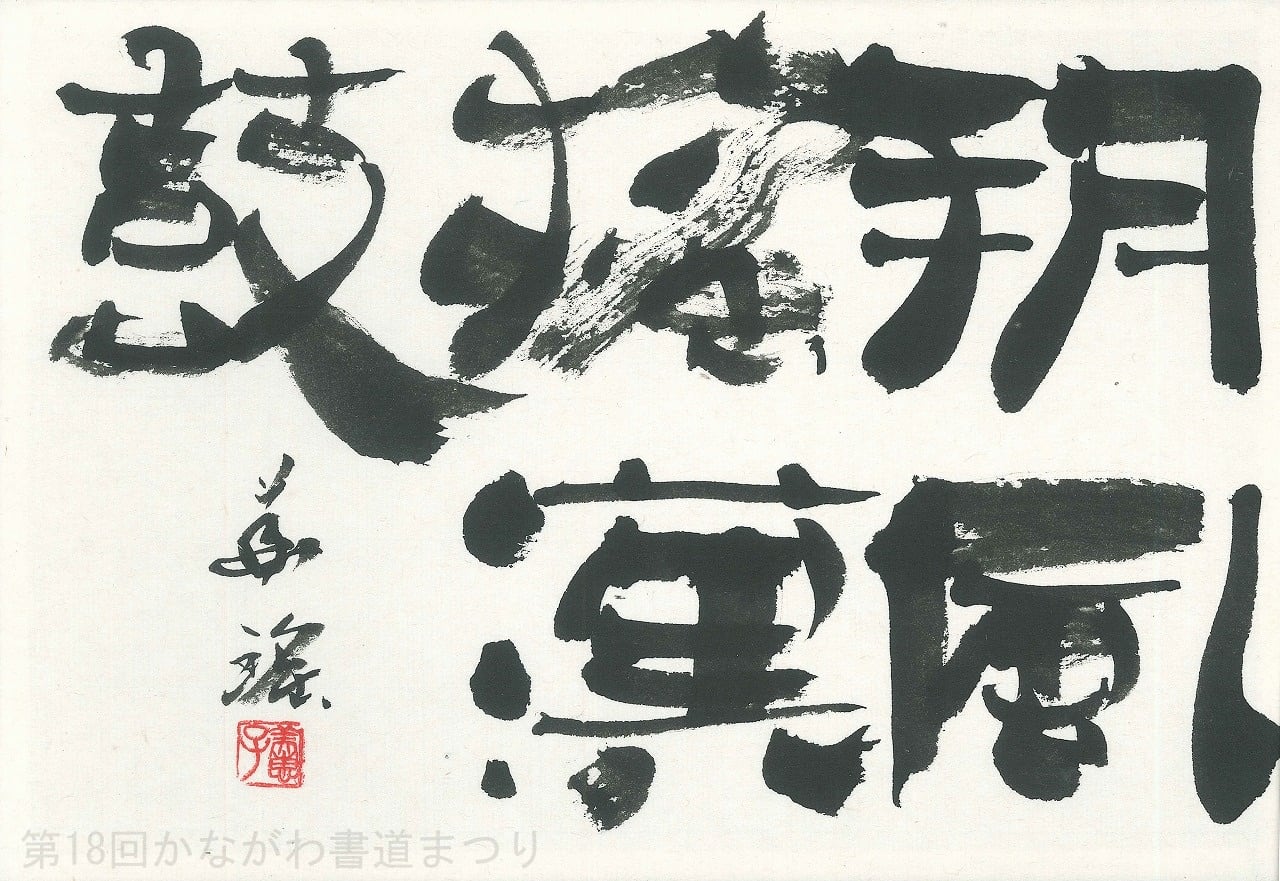 朔風
搖漢
鼓
華瑤
第18回かながわ書道まつり